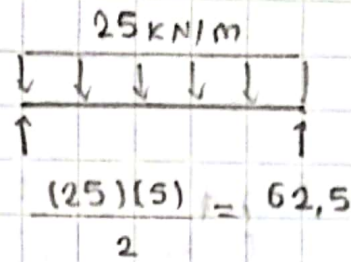 25KN/m
(25)(5) = 62,5
2